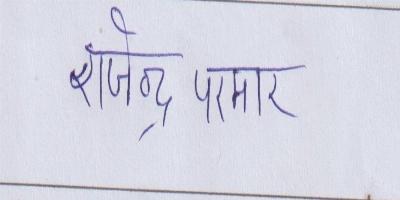 राजेन्द्र परमार